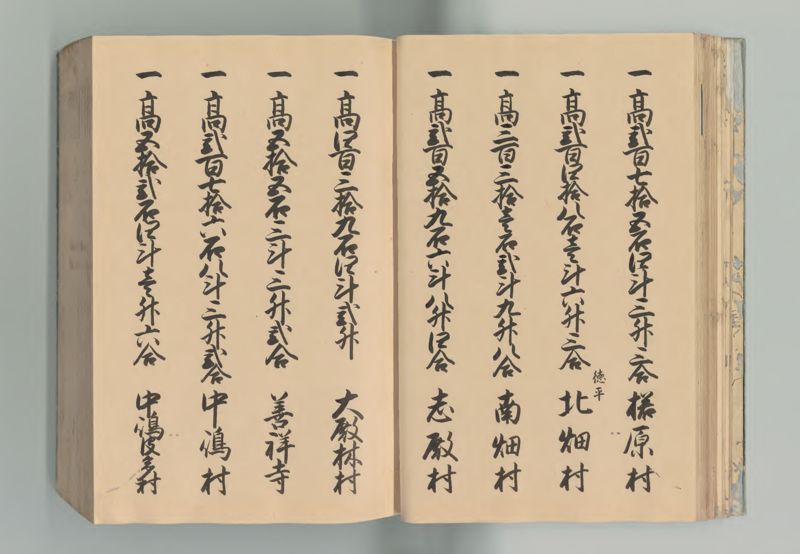 一高弐百七拾五石四斗三升三合 榿原村
一高弐百四拾八石壱斗六升三合 北畑村
徳平
一高三百三拾壱石弐斗九升八合 南畑村
一高弐百五拾九石六斗八升四合 志殿村
一高四百三拾九石四斗弐升 大殿林村
一高五拾五石三斗三升弐合 善祥寺
一高弐百七拾六石八斗三升弐合 中嶋村
一高五拾弐石四斗壱升六合 中嶋 村